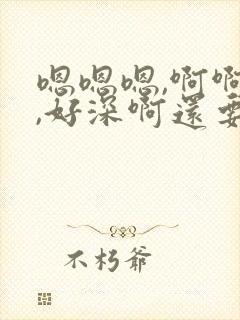 嗯嗯嗯,啊啊
,好深啊還要
不朽爺